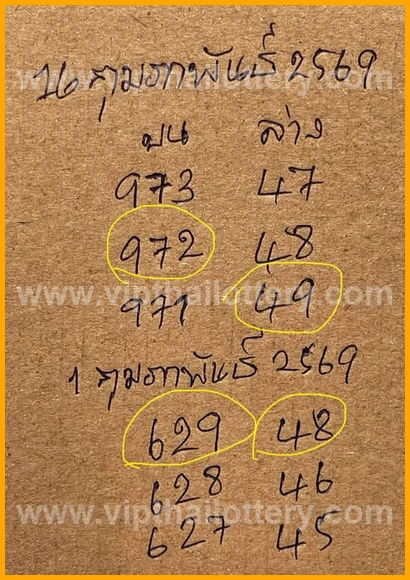 16 กุมภาพันธ์ 2569
บน ล่าง
973 47
972 48
971 49
1 กุมภาพันธ์ 2569
629 48
628 46
627 45
www.vipthailottery.com
www.vipthailottery.com
www.vipthailottery.com